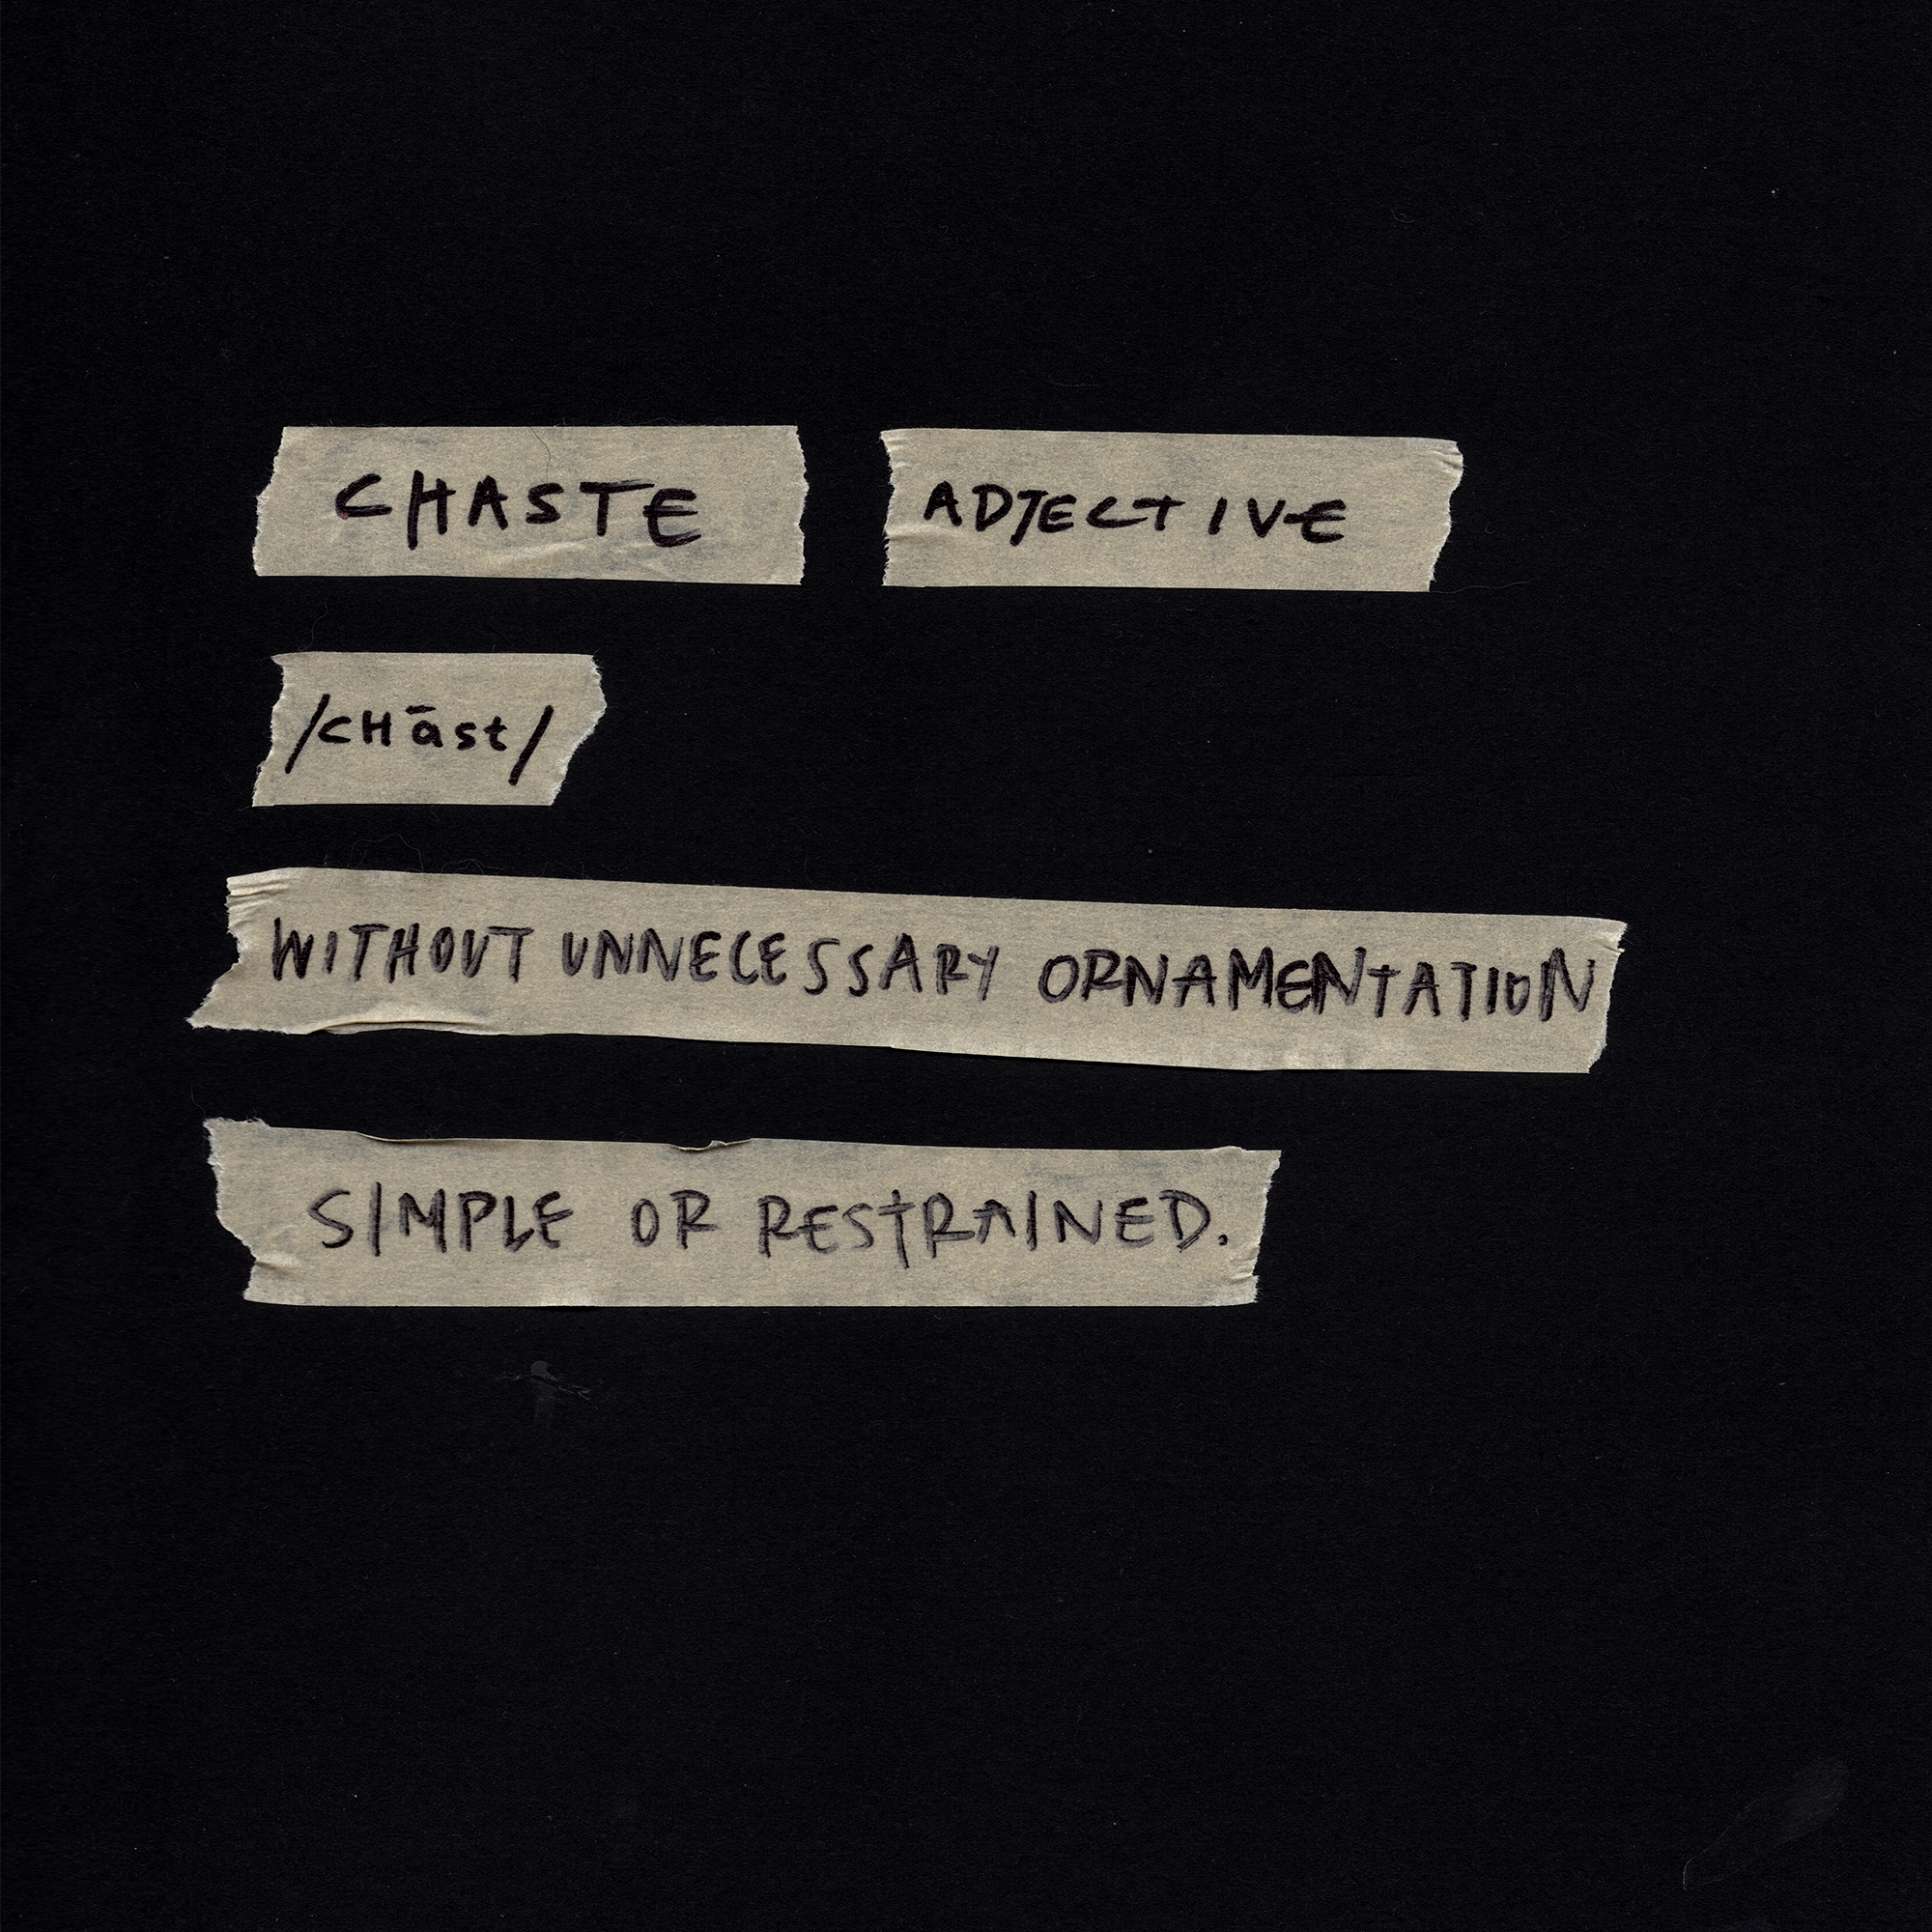 CHASTE ADJECTIVE
/CHāst/
WITHOUT UNNECESSARY ORNAMENTATION
SIMPLE OR RESTRAINED.